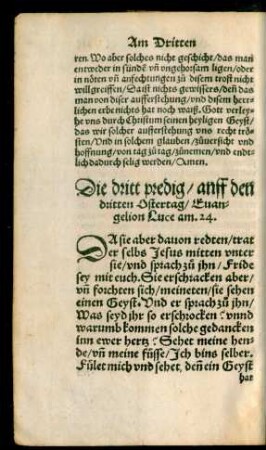 Am Dritten
ren. Wo aber solches nicht geschicht / das man
entweder in sündẽ vñ vngehorsam ligen / oder
in nöten vñ anfechtungen zu disem trost nicht
will greiffen / Da ist nichts gewissers / deñ das
man von diser aufferstehung / vnd disem herr-
lichen erbe nichts hat noch wayß. Gott verley-
he vns durch Christum seinen heyligen Geyst /
das wir solcher aufferstehung vns recht trö-
sten / Vnd in solchem glauben / zůuersicht vnd
hoffnung / von tag zů tag / zůnemen / vnd endt-
lich dadurch selig werden / Amen.
Die dritt predig / auff den
dritten Ostertag / Euan-
gelion Luce am. 24.
DA sie aber dauon redten / trat
Der selbs Jesus mitten vnter
sie / vnd sprach zů jhn / Fride
sey mit euch. Sie erschracken aber /
vñ forchten sich / meineten / sie sehen
einen Geyst. Vnd er sprach zů jhn /
Was seyd jhr so erschrocken? vnnd
warumb kommen solche gedancken
inn ewer hertz? Sehet meine hen-
de / vñ meine füsse / Ich bins selber.
Fület mich vnd sehet, deñ ein Geyst
hat